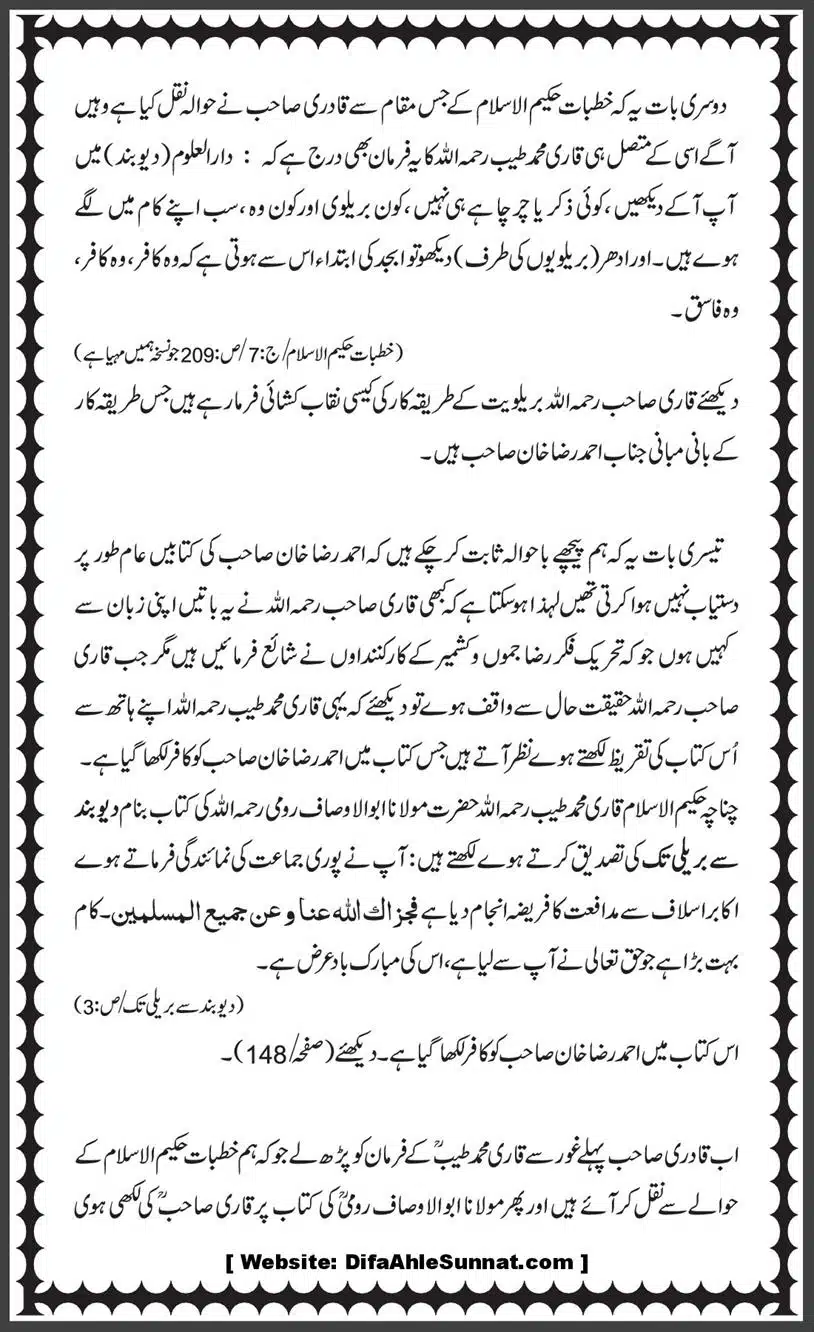 دوسری بات یہ کہ خطبات حکیم الاسلام کے جس مقام سے قادری صاحب نے حوالہ نقل کیا ہے وہیں
آگے اسی کے متصل ہی قاری محمد طیب رحمہ اللہ کا یہ فرمان بھی درج ہے کہ : دارالعلوم (دیوبند) میں
آپ آکے دیکھیں ،کوئی ذکر یا چرچا ہے ہی نہیں ،کون بریلوی اور کون وہ ،سب اپنے کام میں لگے
ہوے ہیں۔اور ادھر (بریلویوں کی طرف) دیکھو تو ابجد کی ابتداء اس سے ہوتی ہے کہ وہ کافر، وہ کافر،
وہ فاسق ۔
(خطبات حکیم الاسلام/ ج:7 /ص:209 جو نسخہ ہمیں مہیا ہے)
دیکھئے قاری صاحب رحمہ اللہ بریلویت کے طریقہ کار کی کیسی نقاب کشائی فرما رہے ہیں جس طریقہ کار
کے بانی مبانی جناب احمد رضا خان صاحب ہیں۔
تیسری بات یہ کہ ہم پیچھے باحوالہ ثابت کر چکے ہیں کہ احمد رضا خان صاحب کی کتابیں عام طور پر
دستیاب نہیں ہوا کرتی تھیں لہذا ہو سکتا ہے کہ کبھی قاری صاحب رحمہ اللہ نے یہ باتیں اپنی زبان سے
کہیں ہوں جو کہ تحریک فکر رضا جموں و کشمیر کے کارکنندوں نے شائع فرمائیں ہیں مگر جب قاری
صاحب رحمہ اللہ حقیقت حال سے واقف ہوے تو دیکھئے کہ یہی قاری محمد طیب رحمہ اللہ اپنے ہاتھ سے
اُس کتاب کی تقریظ لکھتے ہوے نظر آتے ہیں جس کتاب میں احمد رضا خان صاحب کو کافر لکھا گیا ہے۔
چناچہ حکیم الاسلام قاری محمد طیب رحمہ اللہ حضرت مولانا ابوالاوصاف رومی رحمہ اللہ کی کتاب بنام دیوبند
سے بریلی تک کی تصدیق کرتے ہوے لکھتے ہیں: آپ نے پوری جماعت کی نمائندگی فرماتے ہوے
اکابر اسلاف سے مدافعت کا فریضہ انجام دیا ہے فجزاك الله عنا و عن جميع المسلمين۔ کام
بہت بڑا ہے جو حق تعالی نے آپ سے لیا ہے، اس کی مبارک باد عرض ہے۔
(دیوبند سے بریلی تک/ص:3)
اس کتاب میں احمد رضا خان صاحب کو کافر لکھا گیا ہے۔ دیکھئے (صفحہ/148)۔
اب قادری صاحب پہلے غور سے قاری محمد طیبؒ کے فرمان کو پڑھ لے جو کہ ہم خطبات حکیم الاسلام کے
حوالے سے نقل کر آئے ہیں اور پھر مولانا ابوالاوصاف رومیؒ کی کتاب پر قاری صاحبؒ کی لکھی ہوی
[ Website: DifaAhleSunnat.com ]